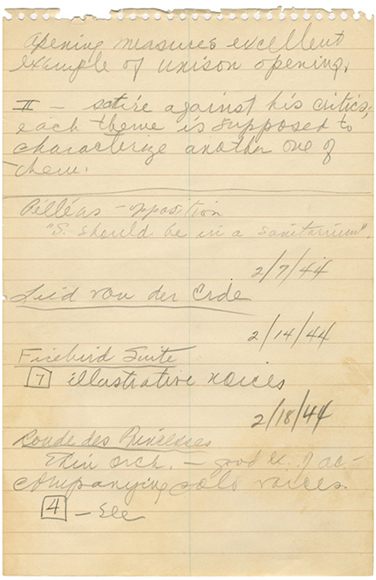 Opening measures excellent
example of unison opening.
II – satire against his critics;
each theme is supposed to
characterize another one of
them.
Pelléas – opposition
"S. should be in a sanitarium".
2/7/44
Lied von der Erde
2/14/44
Firebird Suite
7 illustrative voices
2/18/44
Ronde des Princesses
Thin orch. – good ex. of ac-
companying solo voices.
4 – See